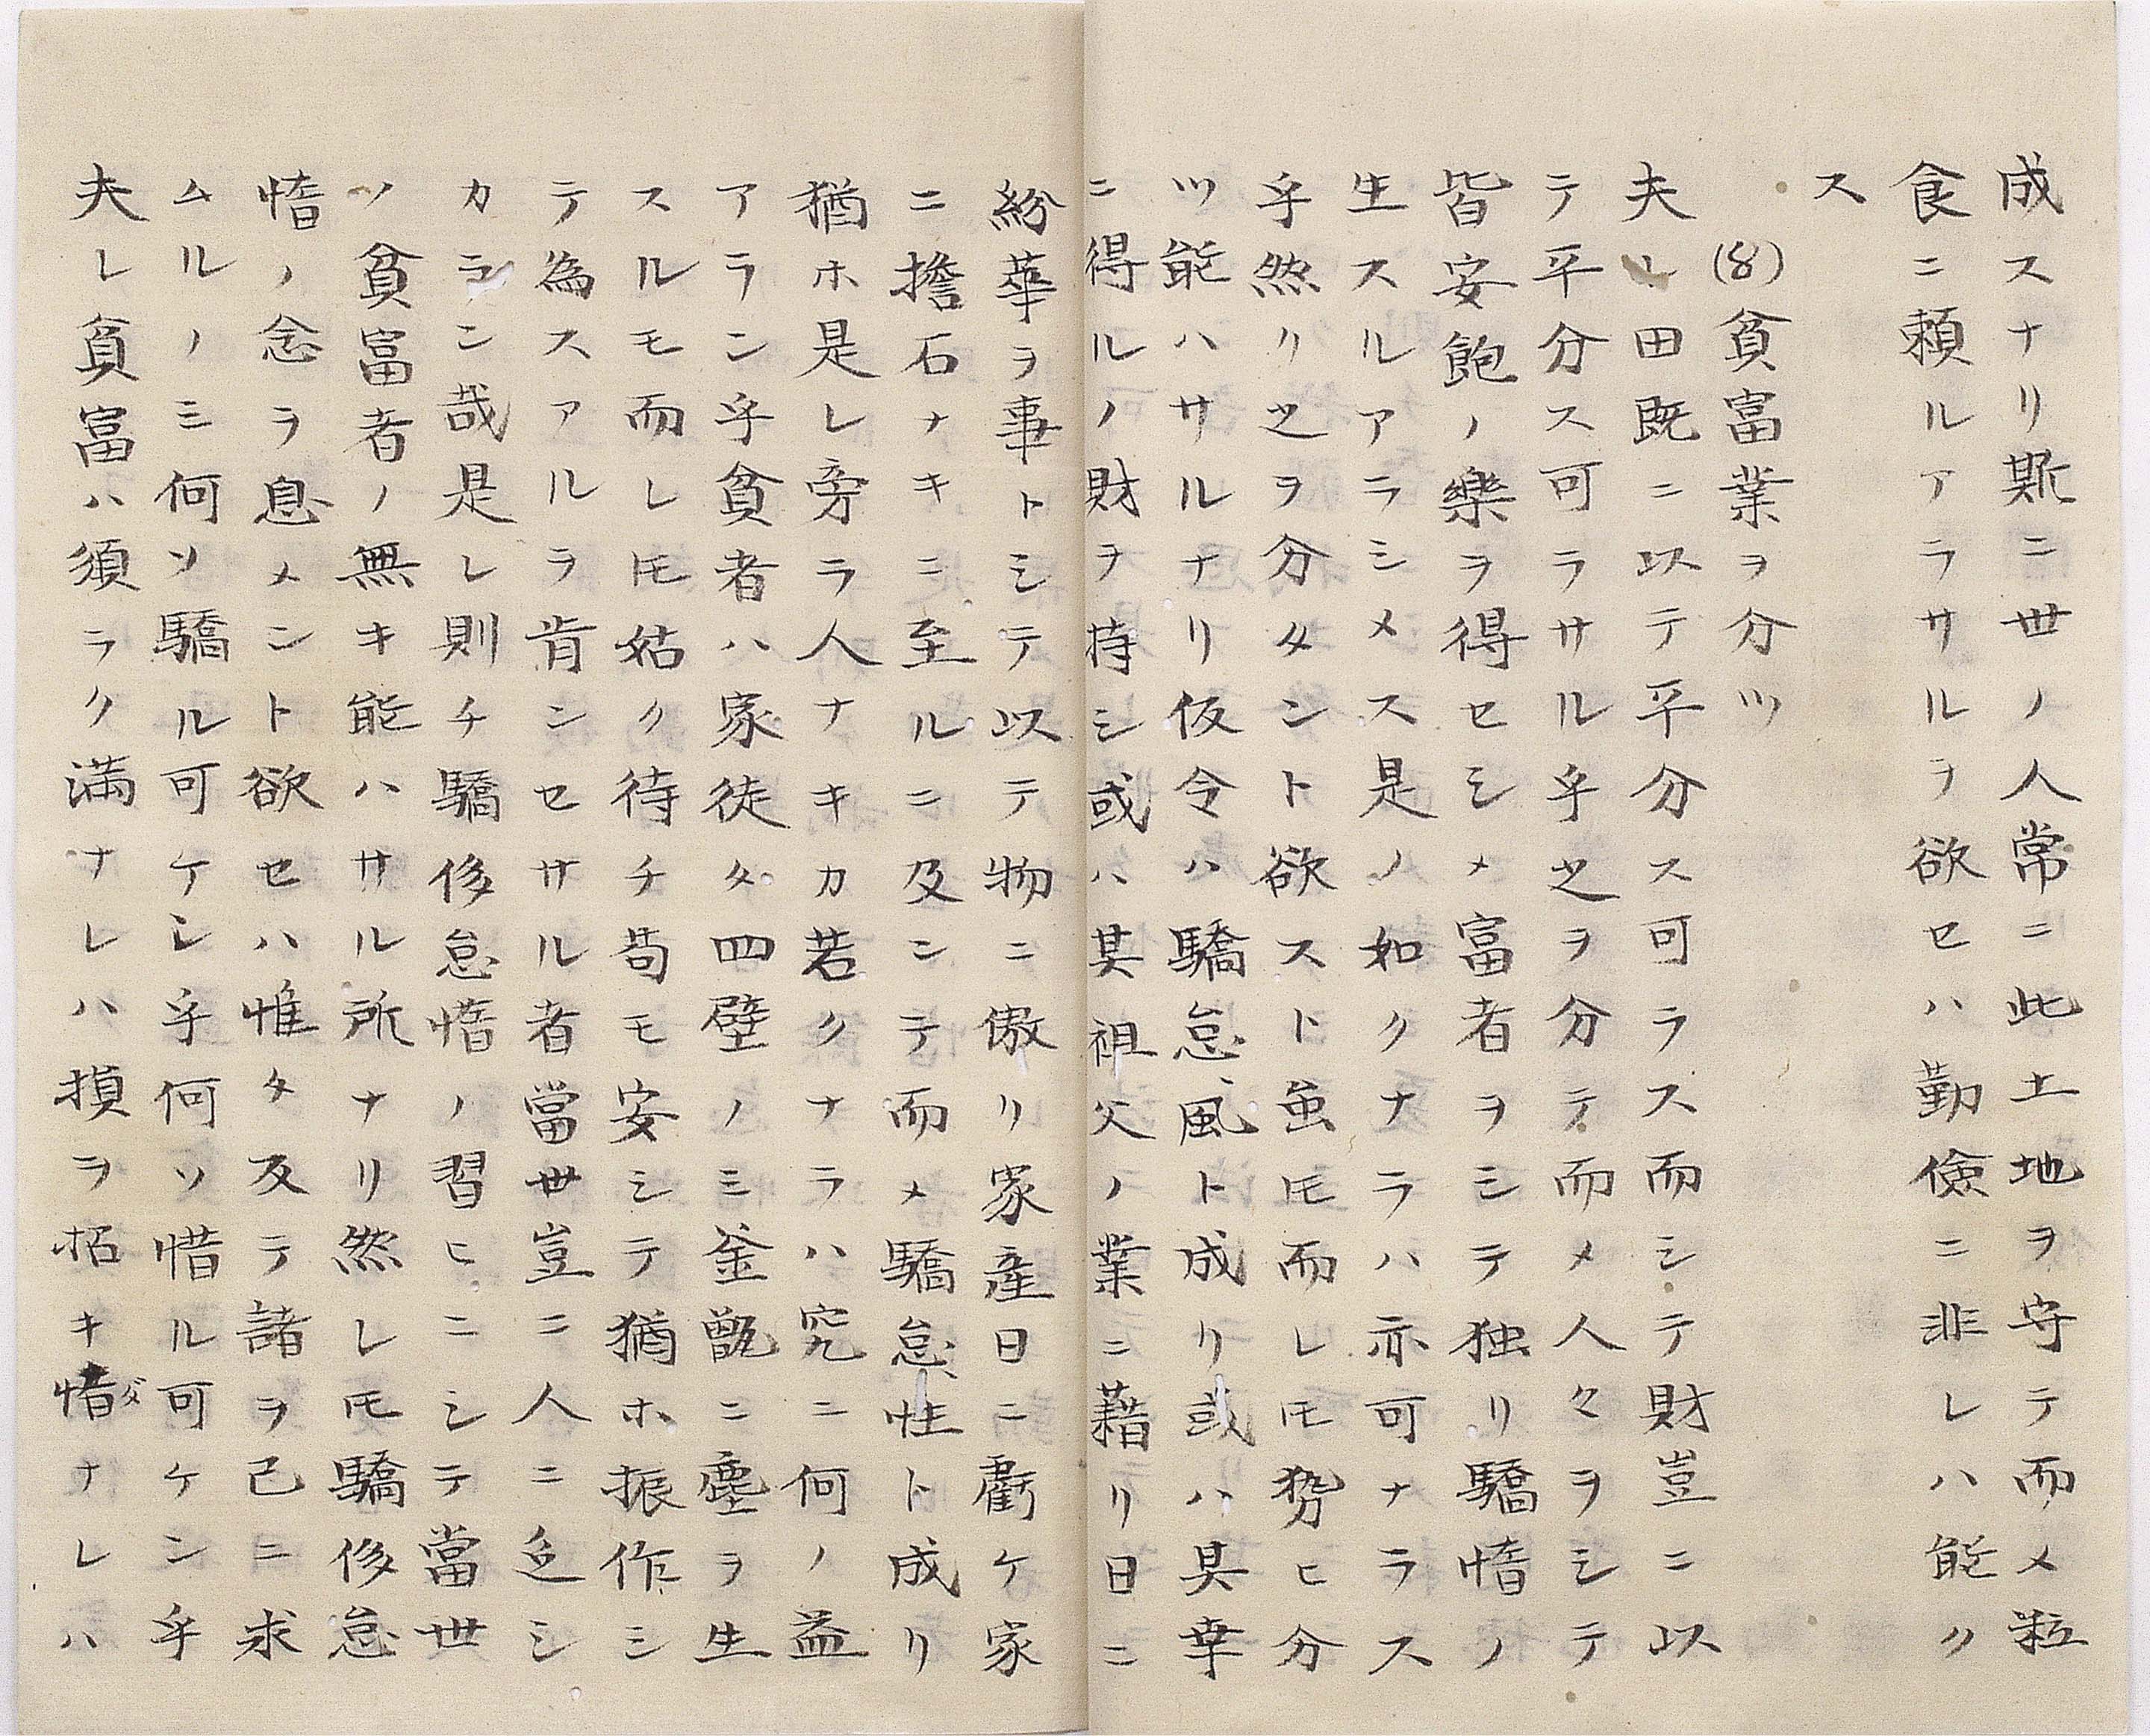 成スナリ斯ニ世ノ人常ニ此土地ヲ守テ而メ粒
食ニ頼ルアラサルヲ欲セハ勤儉ニ非レハ能ク
ス
(8)貧富業ヲ分ツ
夫レ田既ニ以テ平分ス可ラス而シテ財豈ニ以
テ平分ス可ラサル乎之ヲ分テ而メ人々ヲシテ
皆安飽ノ樂ヲ得セシメ富者ヲシテ独リ驕惰ノ
生スルアラシメス是ノ如クナラハ亦可ナラス
乎然リ之ヲ分タント欲スト虽モ而レモ勢ヒ分
ツ能ハサルナリ仮令ハ驕怠風ト成リ或ハ其幸
ニ得ルノ財ヲ持シ或ハ其祖父ノ業ニ藉リ日ニ
紛華ヲ事トシテ以テ物ニ傲リ家産日ニ虧ケ家
ニ擔石ナキニ至ルニ及ンテ而メ驕怠性ト成リ
猶ホ是レ旁ラ人ナキカ若クナラハ究ニ何ノ益
アラン乎貧者ハ家徒タ四壁ノミ釜甑ニ塵ヲ生
スルモ而レモ姑ク待チ苟モ安シテ猶ホ振作シ
テ為スアルヲ肯ンセサル者當世豈ニ人ニ乏シ
カラン哉是レ則チ驕侈怠惰ノ習ヒニシテ當世
ノ貧富者ノ無キ能ハサル所ナリ然レモ驕侈怠
惰ノ念ヲ息メント欲セハ惟タ反テ諸ヲ己ニ求
ムルノミ何ソ驕ル可ケン乎何ソ惜ル可ケン乎
夫レ貧富ハ須ラク満ナレハ損ヲ招キ惰ダナレハ